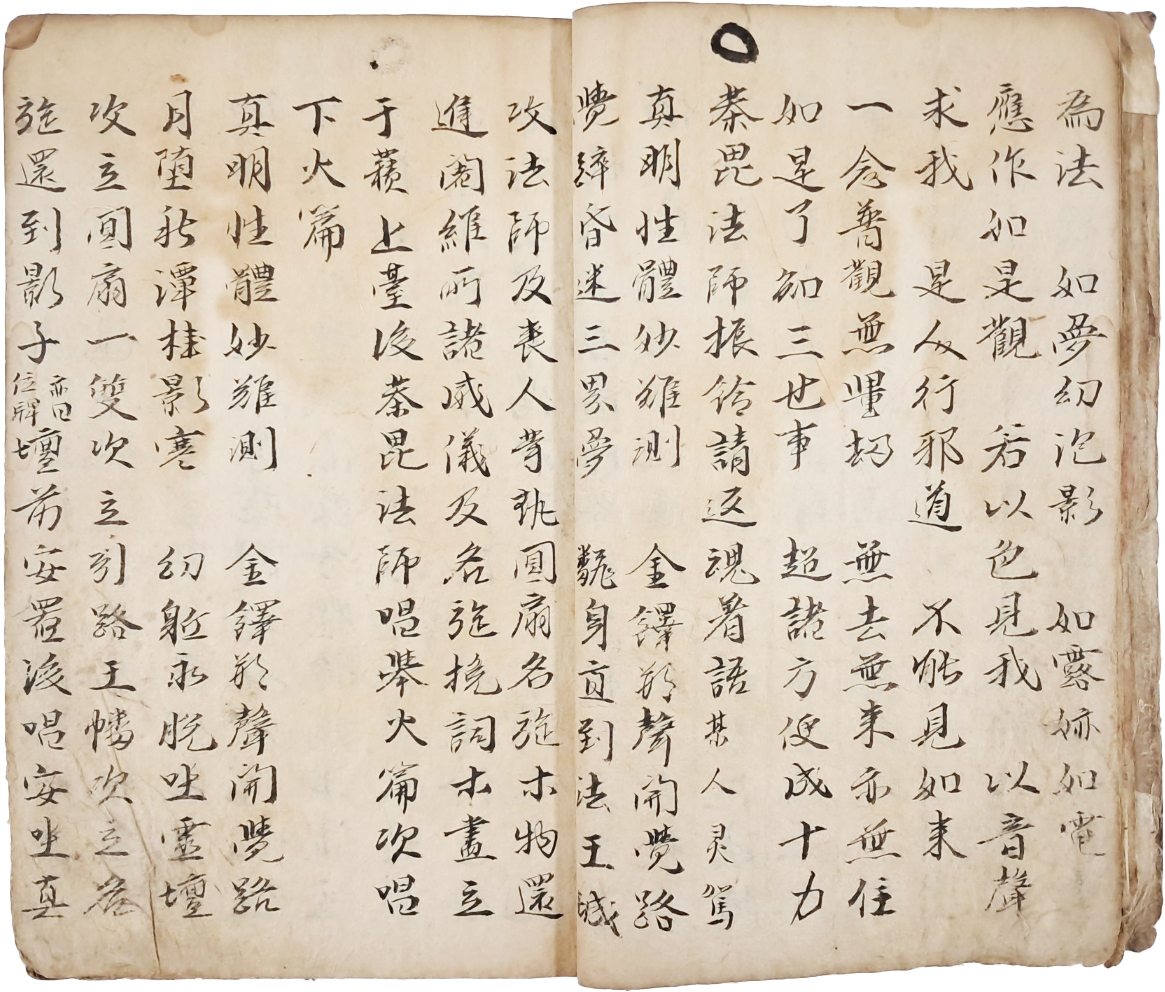 為法　如夢幻泡影　如露亦如電
應作如是觀　若以色見我　以音聲
求我　是人行邪道　不能見如來
一念普觀無量劫　無去無来亦無住
如是了知三世事　超諸方便成十力
茶毘法師振鈴請返魂着語某人灵駕
真明性體妙難測　金鐸形聲開覺路
覺 昏迷三界夢　身直到法王城
次法師及丧人等執圓扇名旌木物還
進闍維所諸威儀及名旌挽詞木盡立
于藉上臺後茶毘法師唱舉火篇次唱
下火篇
真明性體妙難測　金鐸形聲開覺路
月堕秋潭桂影寒　幻躯永脱坐靈壇
次立圓扇一雙次立引路王幡次立名
旌還到影子亦曰位牌壇前安置後唱安坐真